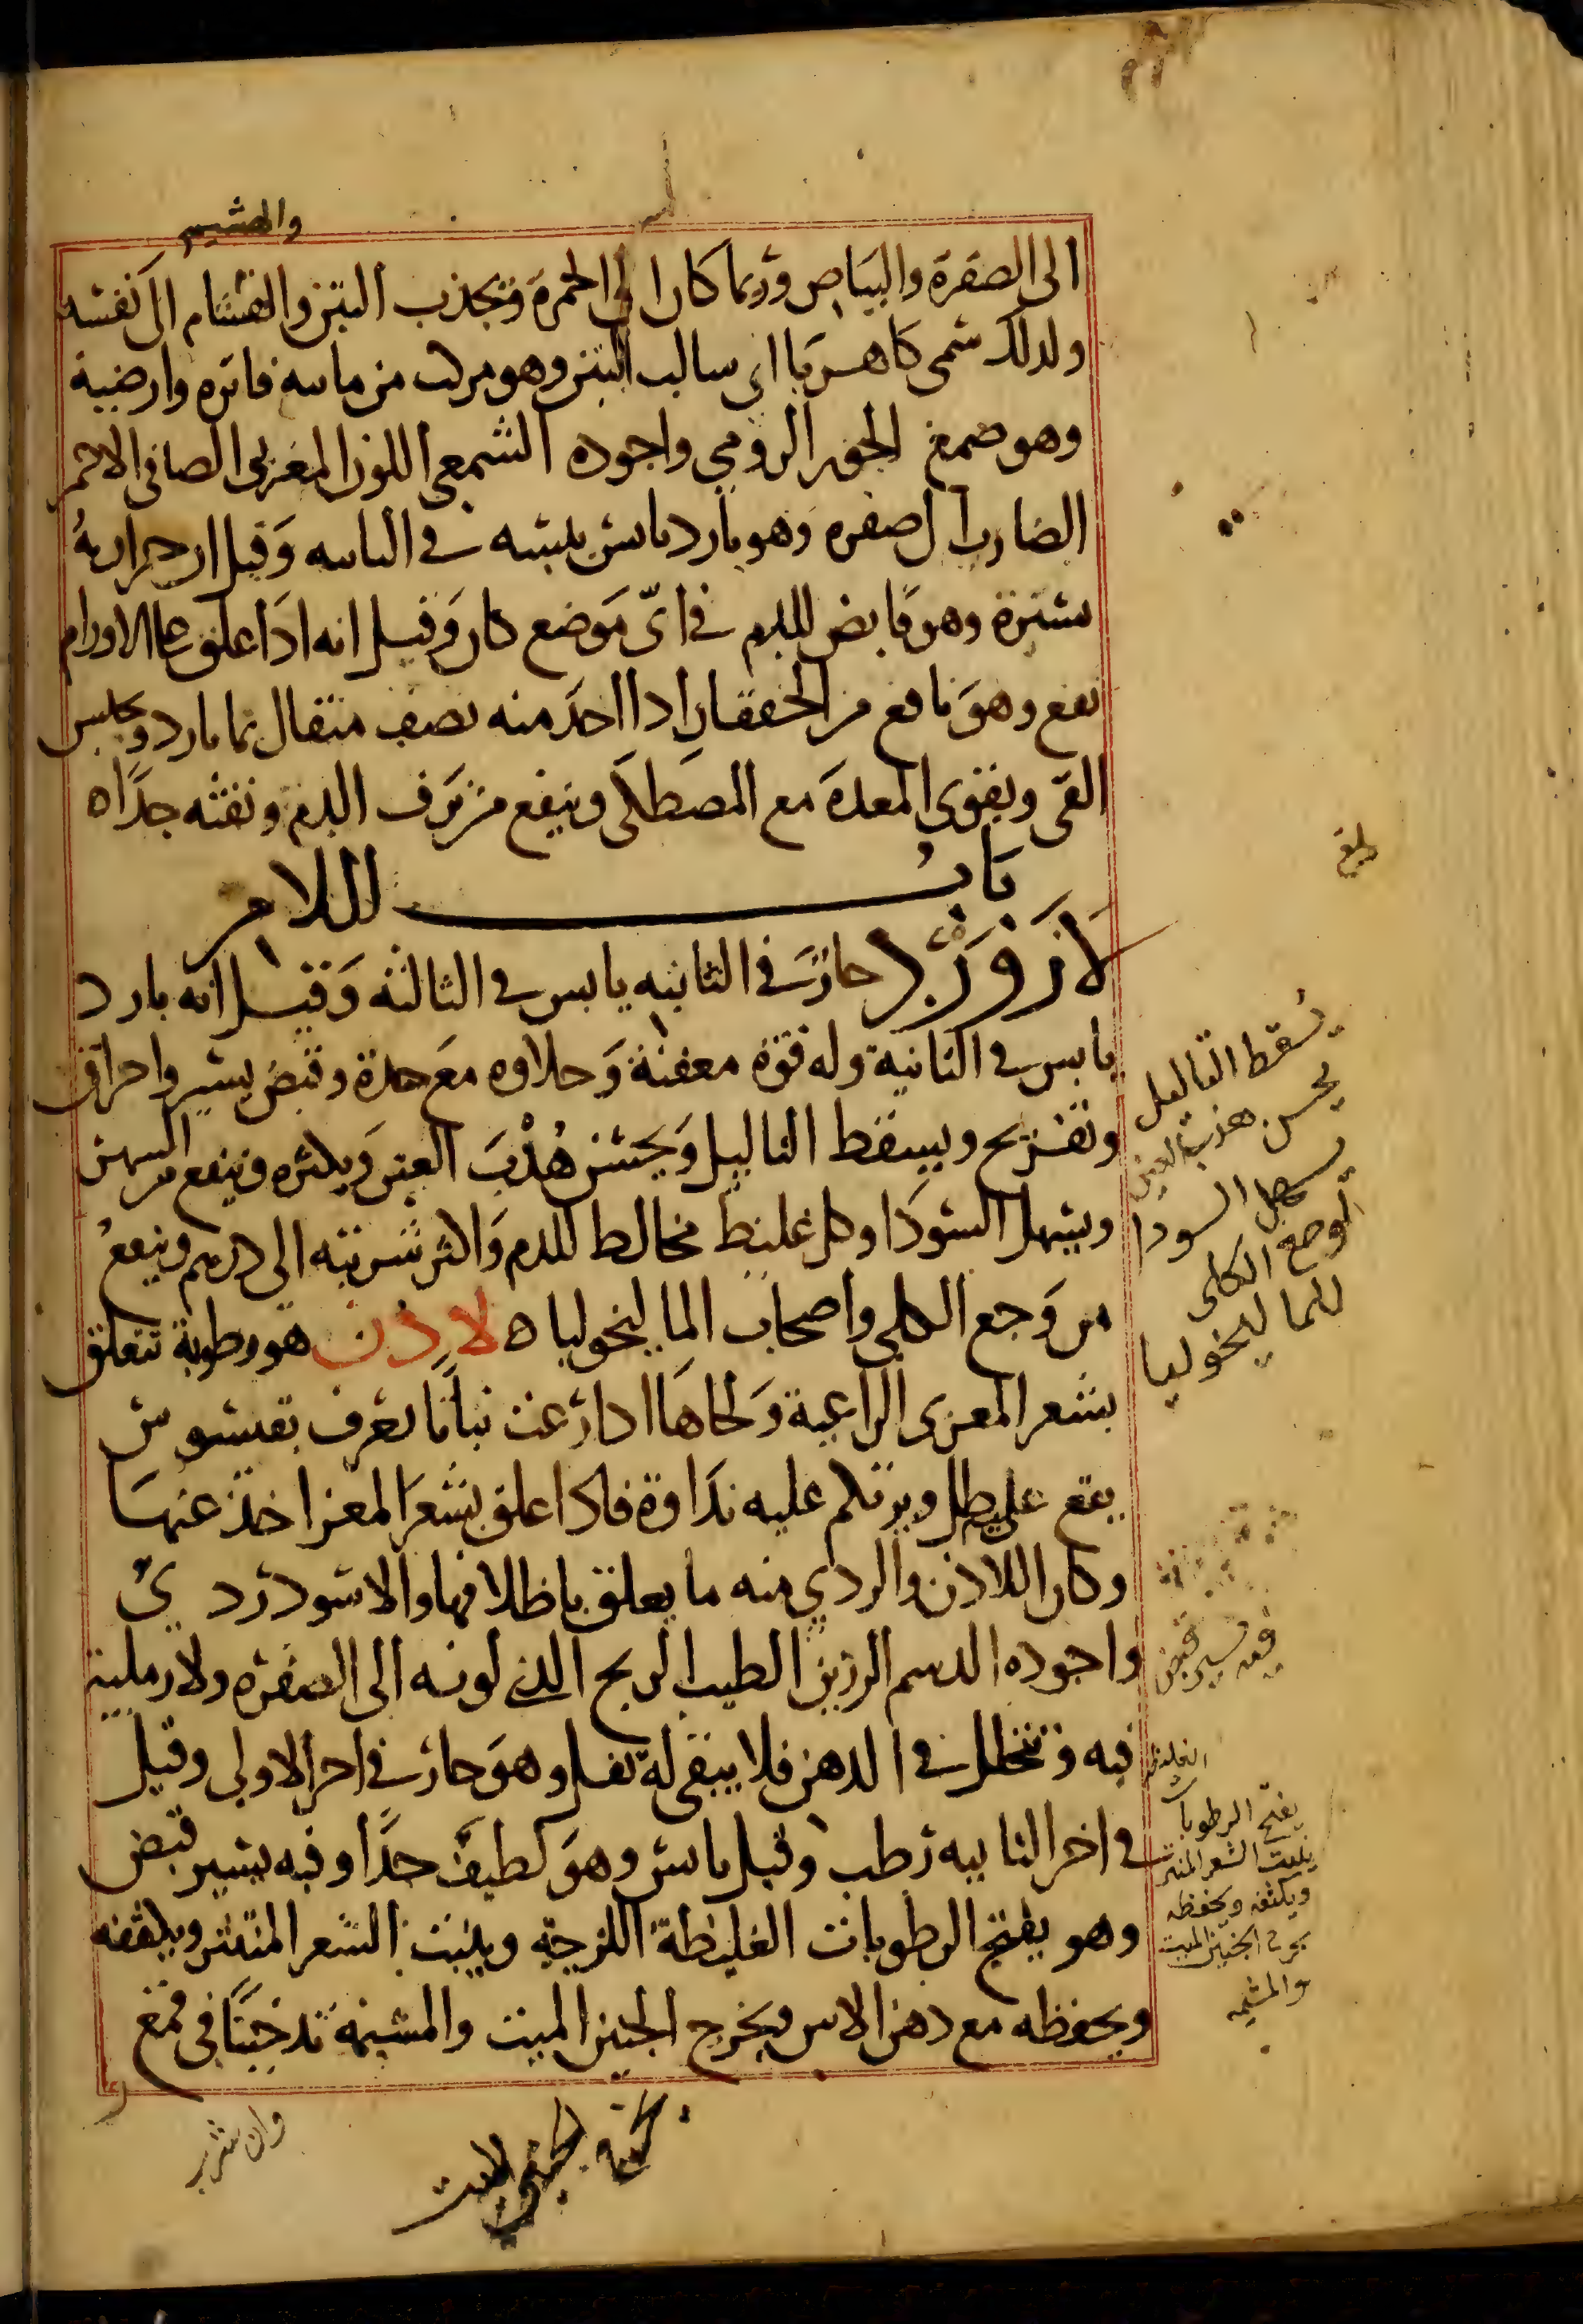 والهشيم
الى الصفرة والبياض وربما كان الى الحمرة وتجذب التبن والهشام الى نفسه
ولذلك سمى كاهربا اى سالب التبن وهو مركب من مائيه فاتره وارضية
وهو صمغ الجوز الرومي واجوده الشمعى اللون المغربى الصافى الاحمر
الضارب الى صفره وهو بارد يابس يبسه في الثانيه وقيل ان حرارته
يسيرة وهو قابض للدم في اىّ موضع كان وقيل انه اذا علق على الاورام
نفع وهو نافع من الخفقان اذا اخذ منه نصف مثقال بما بارد ويحبس
القى ويقوى المعدة مع المصطكى وينفع من نزف الدم ونفثه جدًا ه
باب اللام
لازورد حار في الثانيه يابس في الثالثه وقيل انه بارد
يابس في الثانية وله قوة معفنة وحلاوه مع حدة وقبض يسير واحراق
وتقريح ويسقط الثاليل ويحسن هُدْبَ العين ويكثره وينفع من السهر
ويسهل السودا وكل غليظ مخالط للدم واكثر شربته الى درهم وينفع
من وجع الكلى واصحاب الماليخوليا ه لاذن هو رطوبة تتعلق
بشعر المعزى الراعية ولحاها اذا رعت نباتًا يعرف بقيسوس
يقع عليه طل ويرتكم عليه نداوة فاذا علق بشعر المعز اخذ عنها
وكان اللاذن والردي منه ما يعلق باظلافها والاسود ردي
واجوده الدسم الرزين الطيب الريح الذي لونه الى الصفره ولا رملية
فيه وتتحلل في الدهن فلا يبقى له ثفل وهو حار في اخر الاولى وقيل
في اخر الثانيه رطب وقيل يابس وهو لطيف جدًا وفيه يسير قبض
وهو يفتح الرطوبات الغليظة اللزجة وينبت الشعر المتناثر ويكثفه
ويحفظه مع دهن الاس ويخرج الجنين الميت والمشيمة تدخينًا في قمع
وان شرب
بلغ
يسقط الثاليل
يحسن هدب العين
يسهل السودا
لوجع الكلى
للماليخوليا
فيه يسير قبض
الغليظه
يفتح الرطوبات
ينبت الشعر المنتثر
ويكثفه ويحفظه
يخرج الجنين الميت
والمشيمه